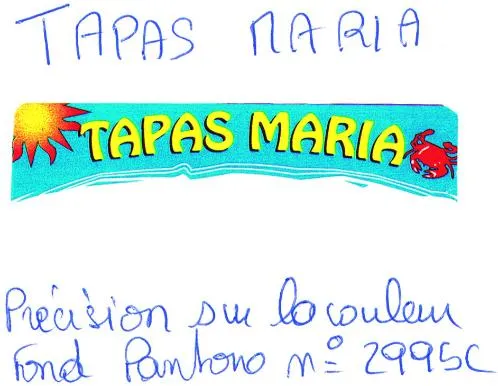 TAPAS MARIA
TAPAS MARIA
Précision sur la couleur
Fond Pantone n° 2995C